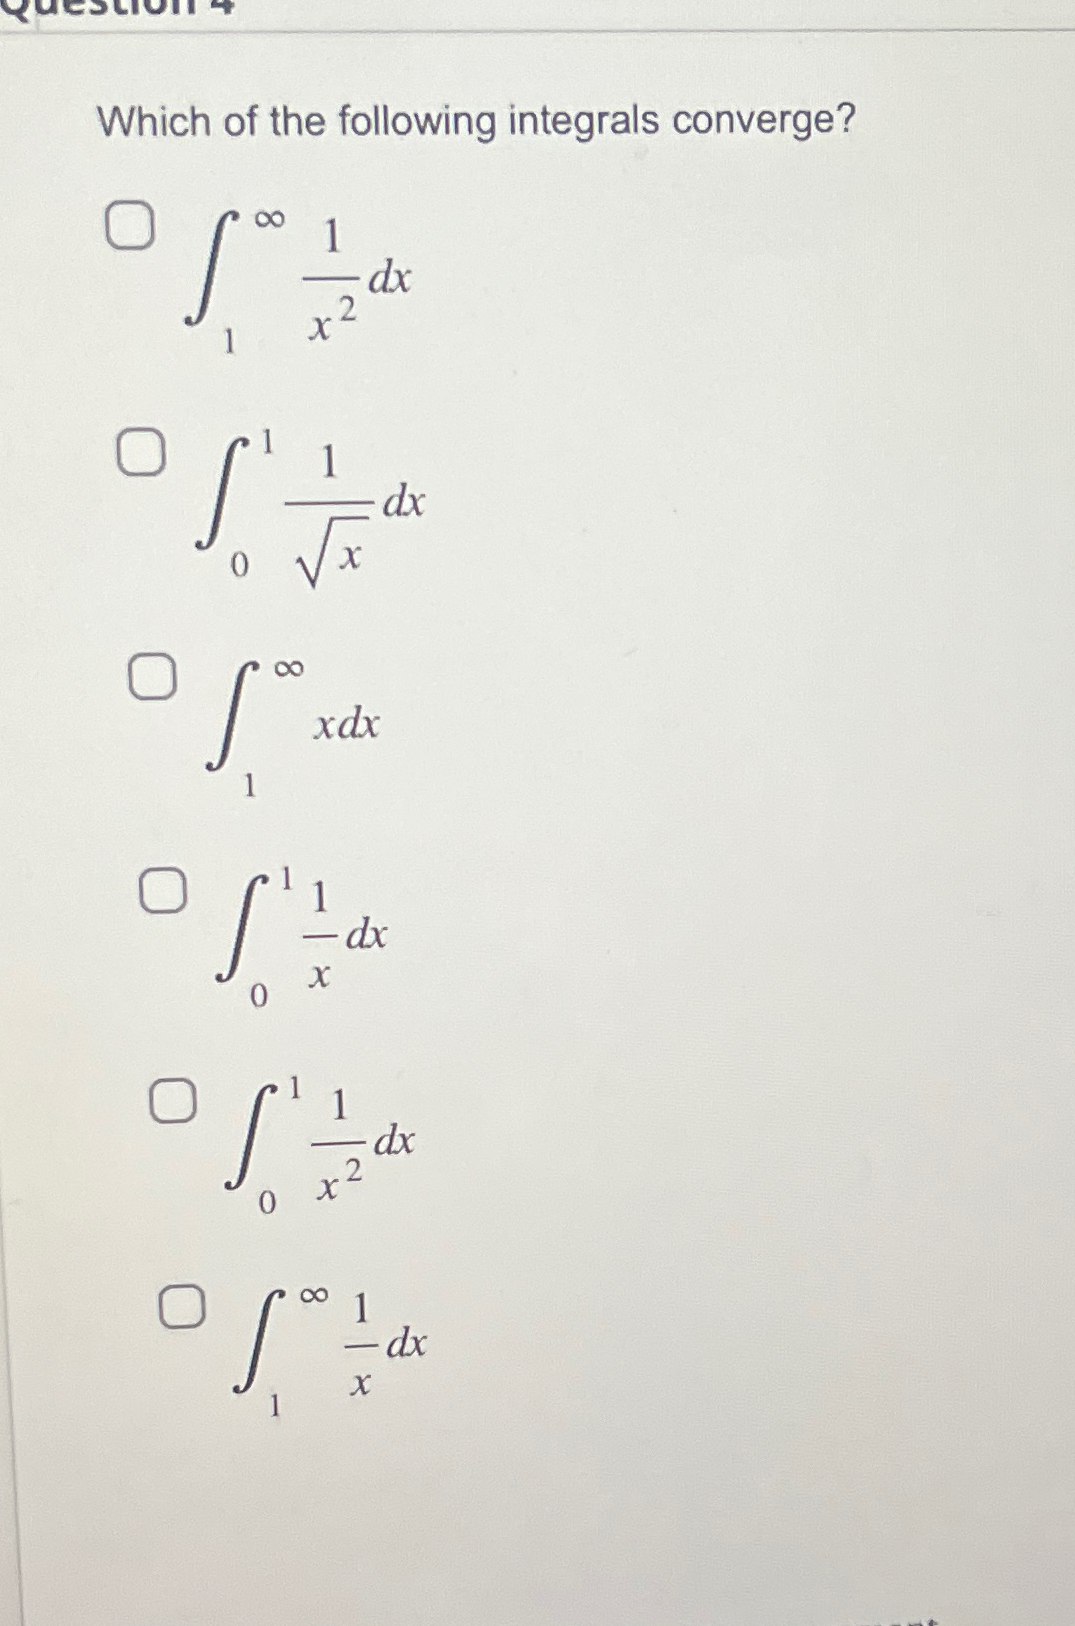 Question 4
Which of the following integrals converge?
∫₁^∞ 1/x² dx
∫₀^1 1/√x dx
∫₁^∞ xdx
∫₀^1 1/x dx
∫₀^1 1/x² dx
∫₁^∞ 1/x dx